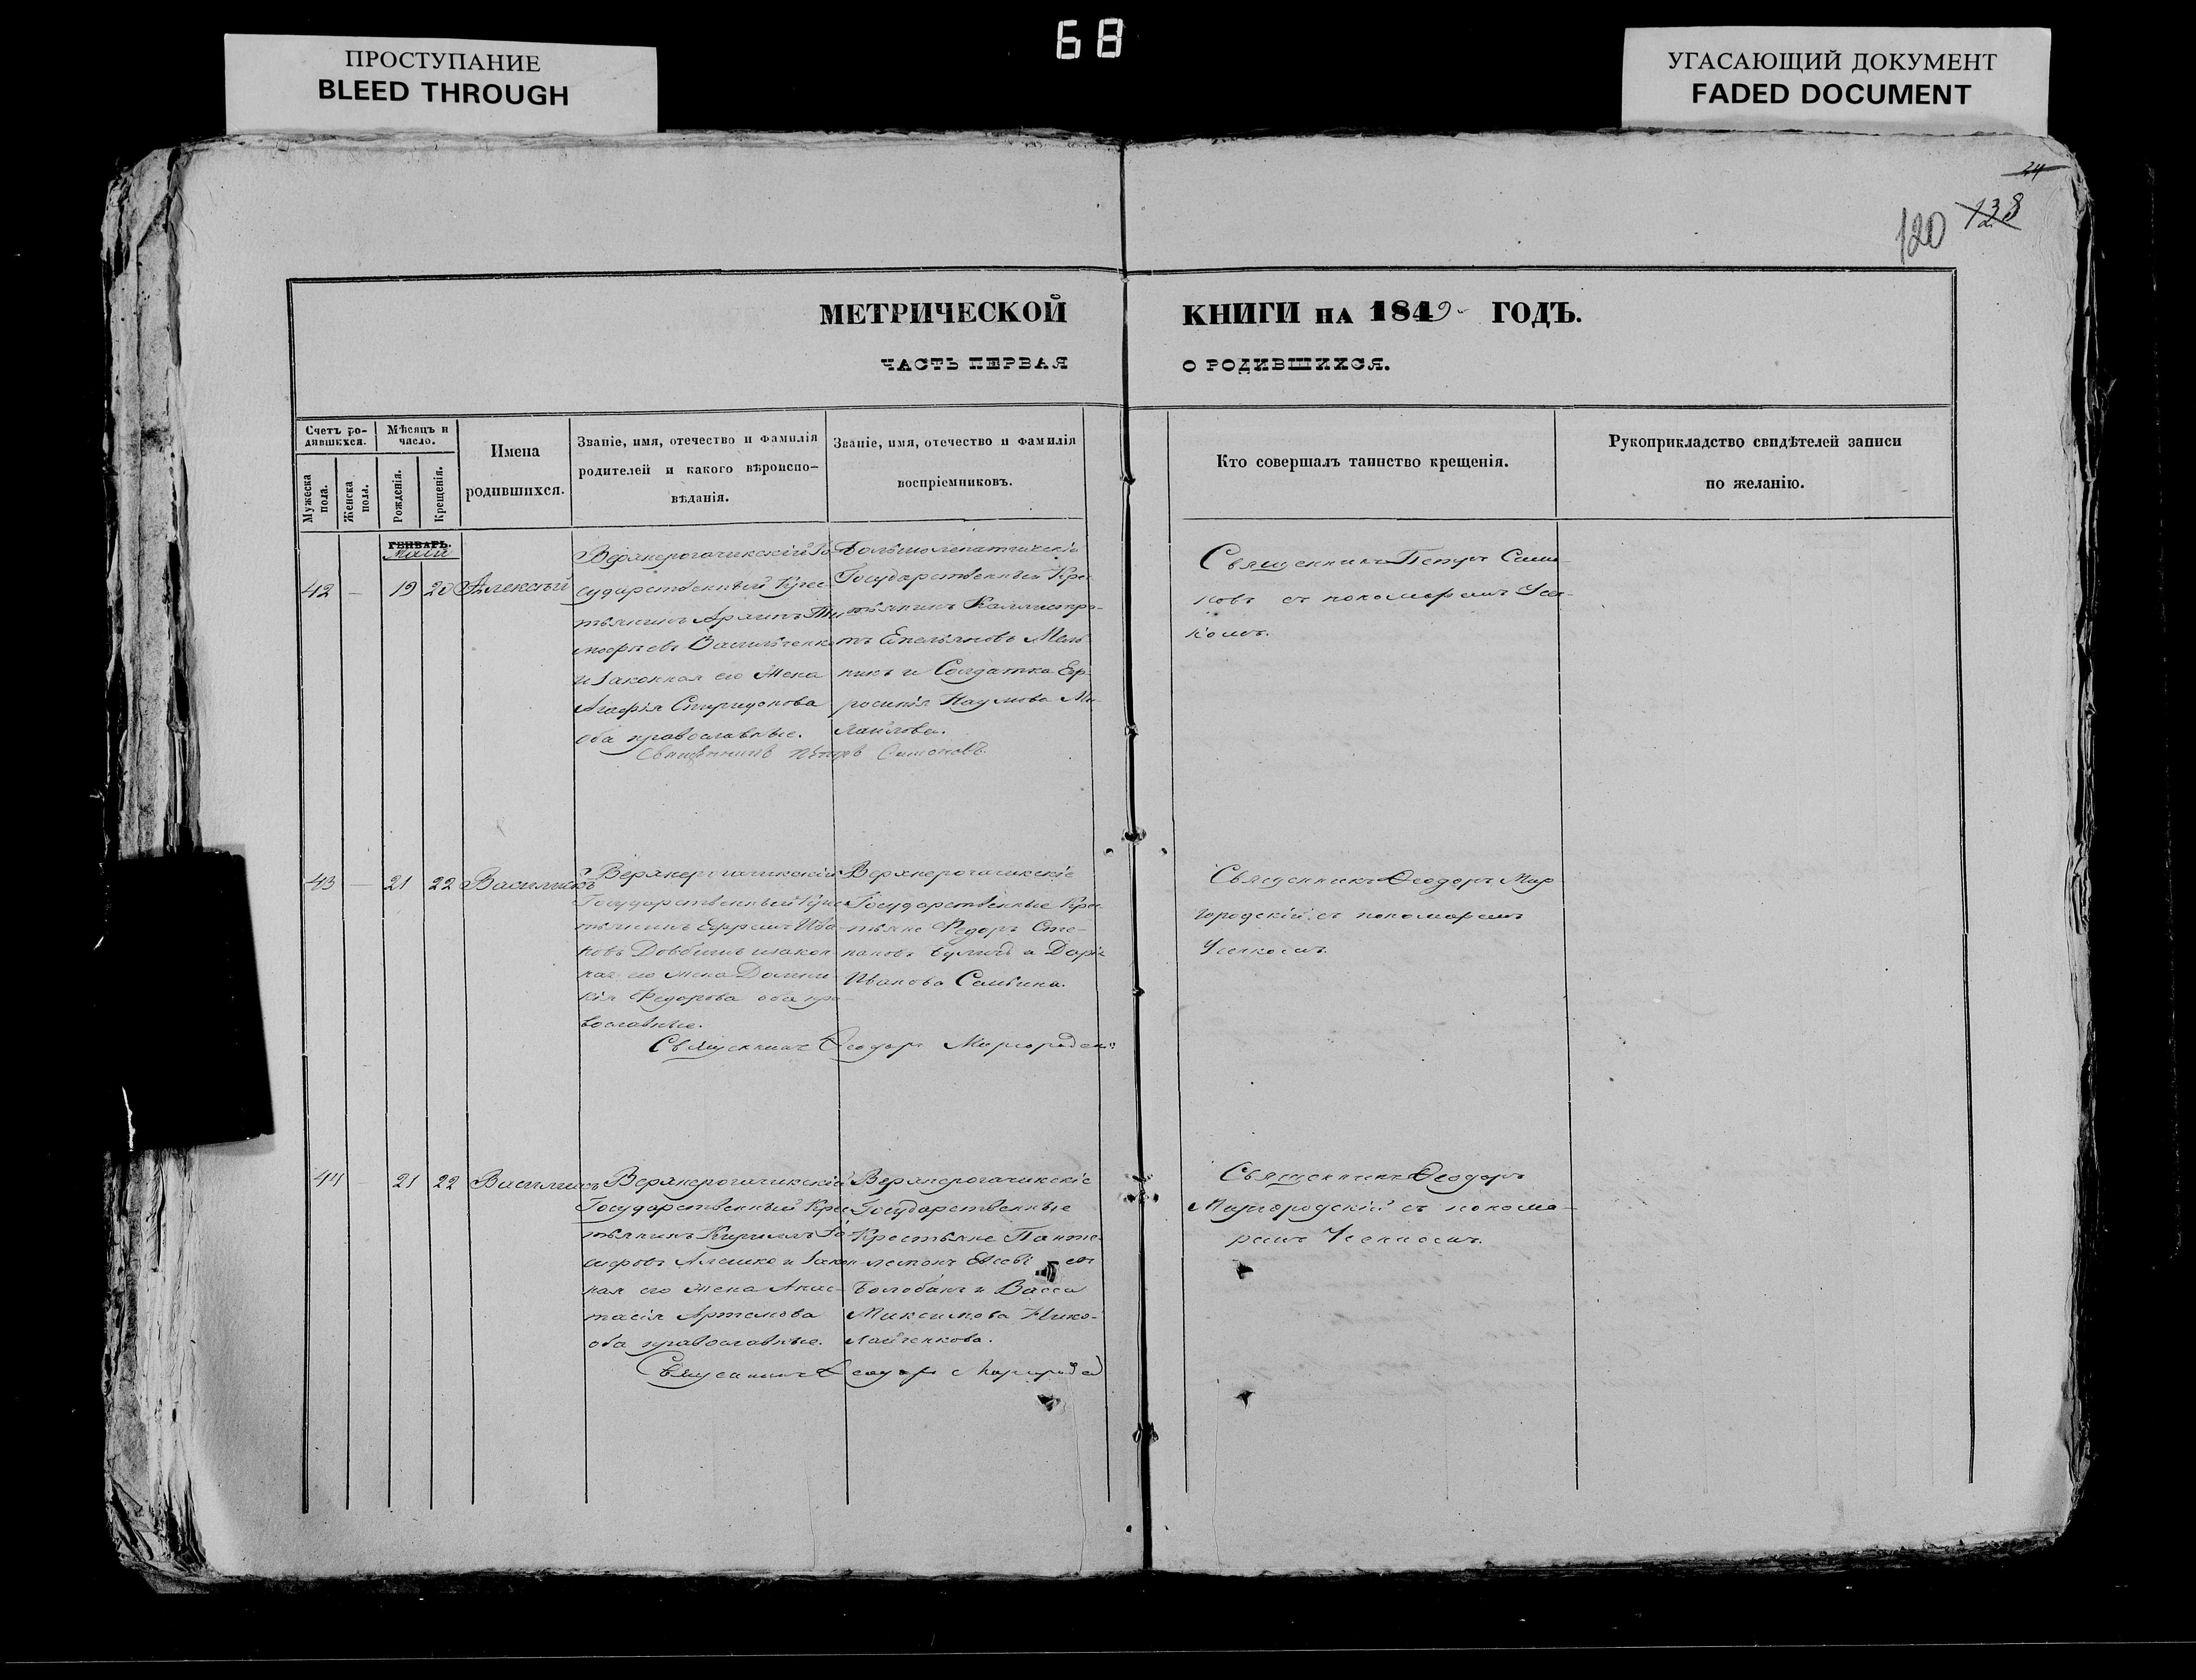 68
ПРОСТУПАНИЕ
BLEED THROUGH
УГАСАЮЩИЙ ДОКУМЕНТ
FADED DOCUMENT
24
120 138
МЕТРИЧЕСКОЙ КНИГИ НА 1849 ГОДЪ.
ЧАСТЬ ПЕРВАЯ О РОДИВШИХСЯ.
Счетъ ро-
дившихся.
Мужеска
пола.
Женска
пола.
Мѣсяцъ и
число.
Рожденія.
Крещенія.
Имена
родившихся.
Званіе, имя, отечество и фамилія
родителей и какого вѣроиспо-
вѣданія.
Званіе, имя, отечество и фамилія
воспріемниковъ.
Кто совершалъ таинство крещенія.
Рукоприкладство свидѣтелей записи
по желанію.
ГЕНВАРЬ.
Маія
42 – 19 20 Алексѣй
Верхнерогачикскій Го-
сударственный Крес-
тьянинъ Архипъ Ти-
моѳеевъ Васильченко
и законная его жена
Агафія Спиридонова
оба православные.
Государственный Крес-
тьянинъ Каллистра-
тъ Емельяновъ Мель-
никъ и Солдатка Еф-
росинія Наумова Ми-
хайлова.
Священникъ Петръ Симоновъ.
Священникъ Петръ Симо-
новъ съ пономаремъ Усен-
комъ.
43 – 21 22 Василискъ
Верхнерогачикскій
Государственный Крес-
тьянинъ Ефремъ Ива-
новъ Довбишъ и закон-
ная его жена Домни-
кія Федорова оба пра-
вославные.
Верхнерогачикскіе
Государственные Крес-
тьяне Федоръ Сте-
пановъ и Дарія
Иванова Савина.
Священникъ Ѳеодоръ Миргородскій
Священникъ Ѳеодоръ Мир-
городскій съ пономаремъ
Усенкомъ.
44 – 21 22 Василискъ
Верхнерогачикскій
Государственный Крес-
тьянинъ Кирилъ
Алешко и закон-
ная его жена Анас-
тасія Артемова
оба православные.
Верхнерогачикскіе
Государственные
Крестьяне Панте-
леимонъ
Болобанъ и Васса
Максимова Нико-
лайченкова.
Священникъ Ѳеодоръ Миргород
Священникъ Ѳеодоръ
Миргородскій съ понома-
ремъ Усенкомъ.